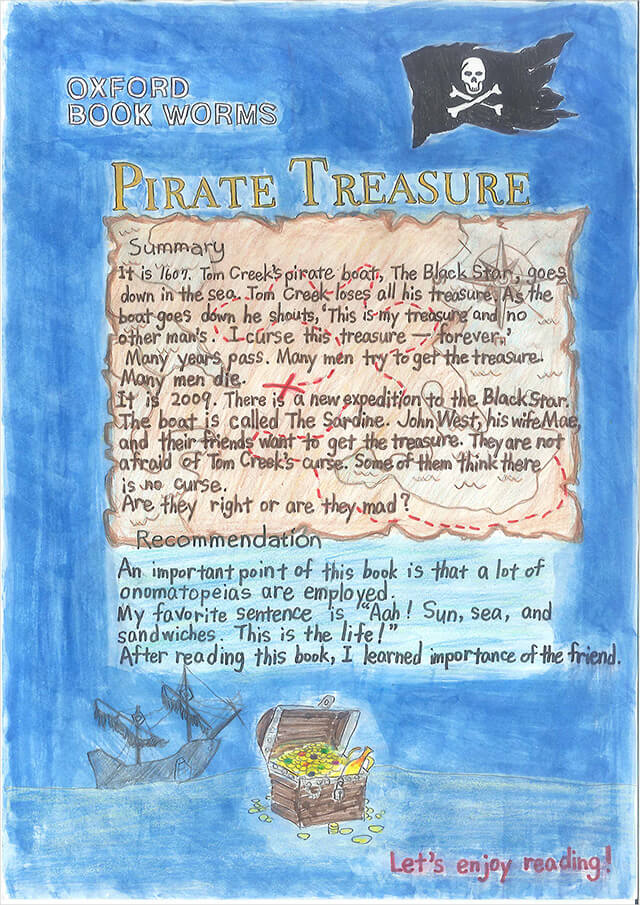 OXFORD
BOOK WORMS
PIRATE TREASURE
Summary
It is 1607. Tom Creek's pirate boat, The Black Star, goes
down in the sea. Tom Creek loses all his treasure. As the
boat goes down he shouts, 'This is my treasure and no
other man's. I curse this treasure — forever.'
Many years pass. Many men try to get the treasure.
Many men die.
It is 2009. There is a new expedition to the Black Star.
The boat is called The Sardine. John West, his wife Mae,
and their friends want to get the treasure. They are not
afraid of Tom Creek's curse. Some of them think there
is no curse.
Are they right or are they mad?
Recommendation
An important point of this book is that a lot of
onomatopeias are employed.
My favorite sentence is "Aah! Sun, sea, and
sandwiches. This is the life!"
After reading this book, I learned importance of the friend.
Let's enjoy reading!